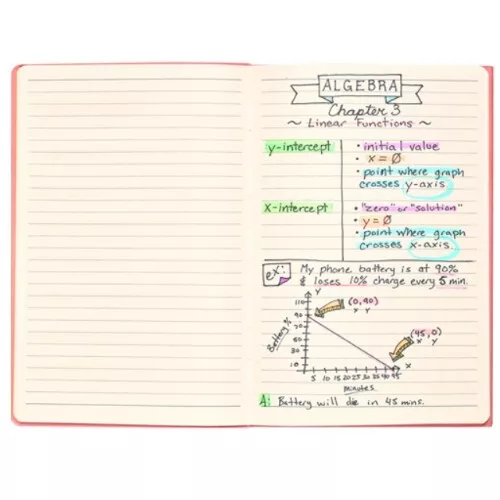 ALGEBRA
Chapter 3
~ Linear Functions ~
y-intercept
• initial value
• x = Ø
• point where graph
crosses y-axis
x-intercept
• "zero" or "solution"
• y = Ø
• point where graph
crosses x-axis.
ex: My phone battery is at 90%
& loses 10% charge every 5 min.
Y
110
90
70
50
30
10
Battery %
(0,90)
x y
(45,0)
x y
X
5 10 15 20 25 30 35 40 45
minutes
A: Battery will die in 45 mins.